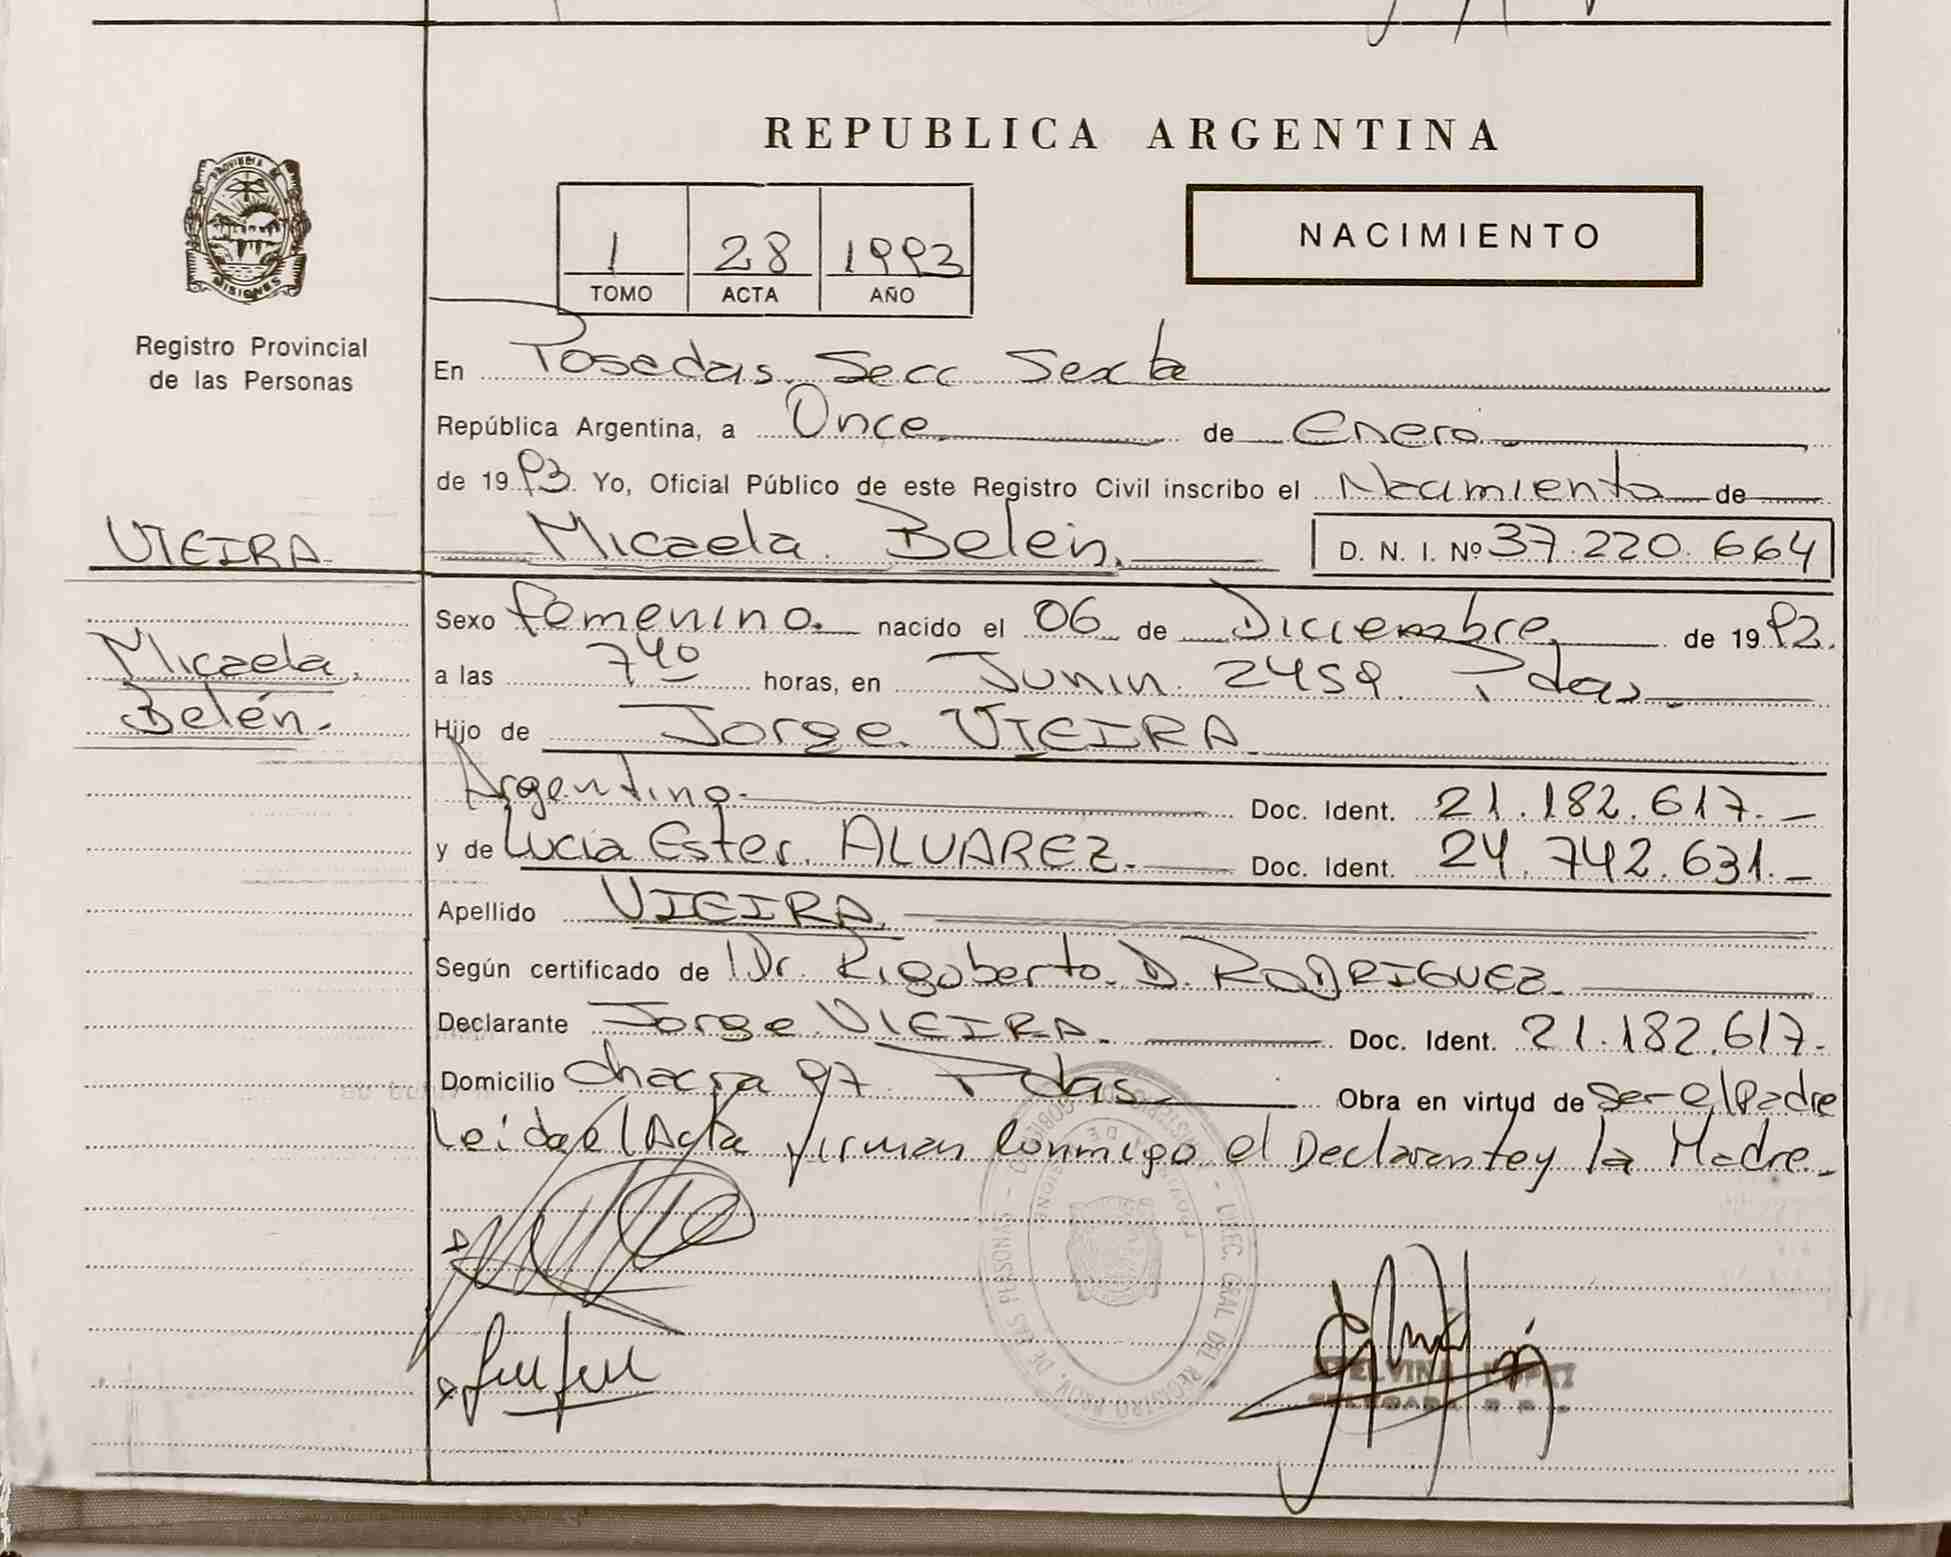 REPUBLICA ARGENTINA
PROVINCIA DE
MISIONES
Registro Provincial
de las Personas
1 28 1993
TOMO ACTA AÑO
NACIMIENTO
En Posadas Secc Sexta
República Argentina, a Once de Enero
de 1993. Yo, Oficial Público de este Registro Civil inscribo el Nacimiento de
VIEIRA
Micaela Belén. D. N. I. Nº 37.220.664
Sexo femenino. nacido el 06 de Diciembre de 1992.
Micaela
Belén.
a las 7 40 horas, en Junin 2459 Pdas
Hijo de Jorge VIEIRA
Argentino. Doc. Ident. 21.182.617.-
y de Lucia Ester ALVAREZ. Doc. Ident. 24.742.631.-
Apellido VIEIRA
Según certificado de Dr. Rigoberto D. RODRIGUEZ
Declarante Jorge VIEIRA Doc. Ident. 21.182.617.
Domicilio Chacra 97 Pdas Obra en virtud de Ser el Padre
Leida el Acta firman Conmigo el Declarante y la Madre.
DIREC. GRAL DEL REGISTRO PROV. DE LAS PERSONAS